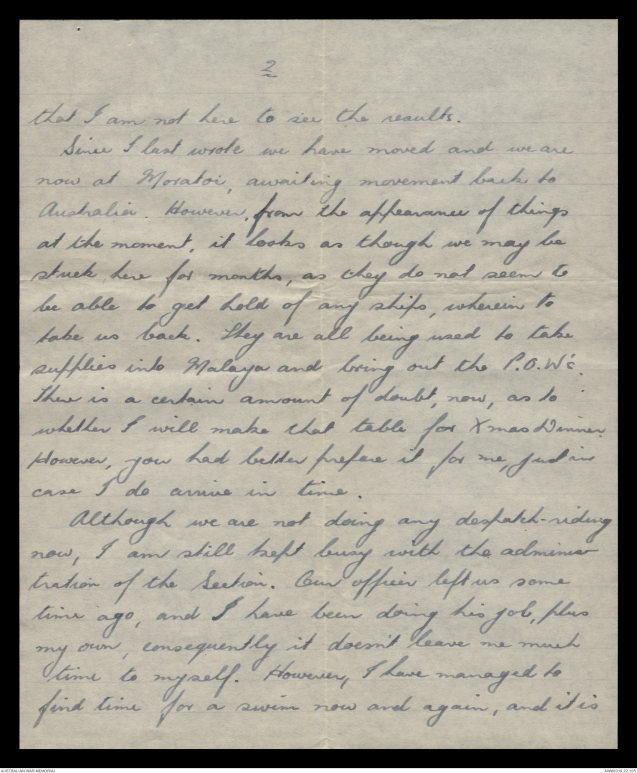 2
that I am not here to see the results.
Since I last wrote we have moved and we are
now at Moratoi, awaiting movement back to
Australia. However, from the appearance of things
at the moment, it looks as though we may be
stuck here for months, as they do not seem to
be able to get hold of any ships, wherein to
take us back. They are all being used to take
supplies into Malaya and bring out the P.O.W's.
There is a certain amount of doubt, now, as to
whether I will make that table for Xmas Dinner.
However, you had better prepare it for me, just in
case I do arrive in time.
Although we are not doing any despatch-riding
now, I am still kept busy with the adminis-
tration of the Section. Our officer left us some
time ago, and I have been doing his job, plus
my own, consequently it doesn't leave me much
time to myself. However, I have managed to
find time for a swim now and again, and it is
AUSTRALIAN WAR MEMORIAL